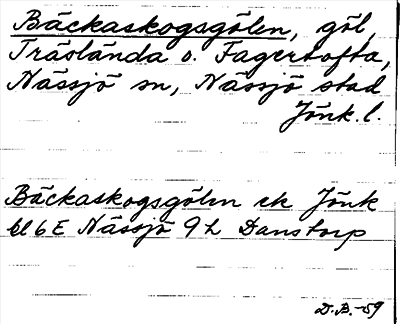 Bäckaskogsgölen, göl,
Träslända o. Fagertofta,
Nässjö sn, Nässjö stad
Jönk. l.
Bäckaskogsgölen ek Jönk
bl 6 E Nässjö 9 h Danstorp
D.B.-59